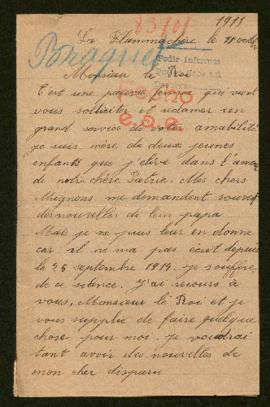 1915
La Flamengrie le 28
Monsieur le Roi
C'est une pauvre femme qui vient
vous solliciter et réclamer un
grand service de votre amabilité
je suis mère de deux jeunes
enfants que j'élève dans l'amour
de notre chère Patrie. Mes chers
Mignons me demandent souvent
des nouvelles de leur papa
Mais je ne puis leur en donne
car il ne ma pas écrit depuis
le 26 septembre 1914. je souffre
de ce silence. J'ai recours à
vous, Monsieur le Roi et je
vous supplie de faire quelque
chose pour moi. je voudrai
tant avoir des nouvelles de
mon cher disparu